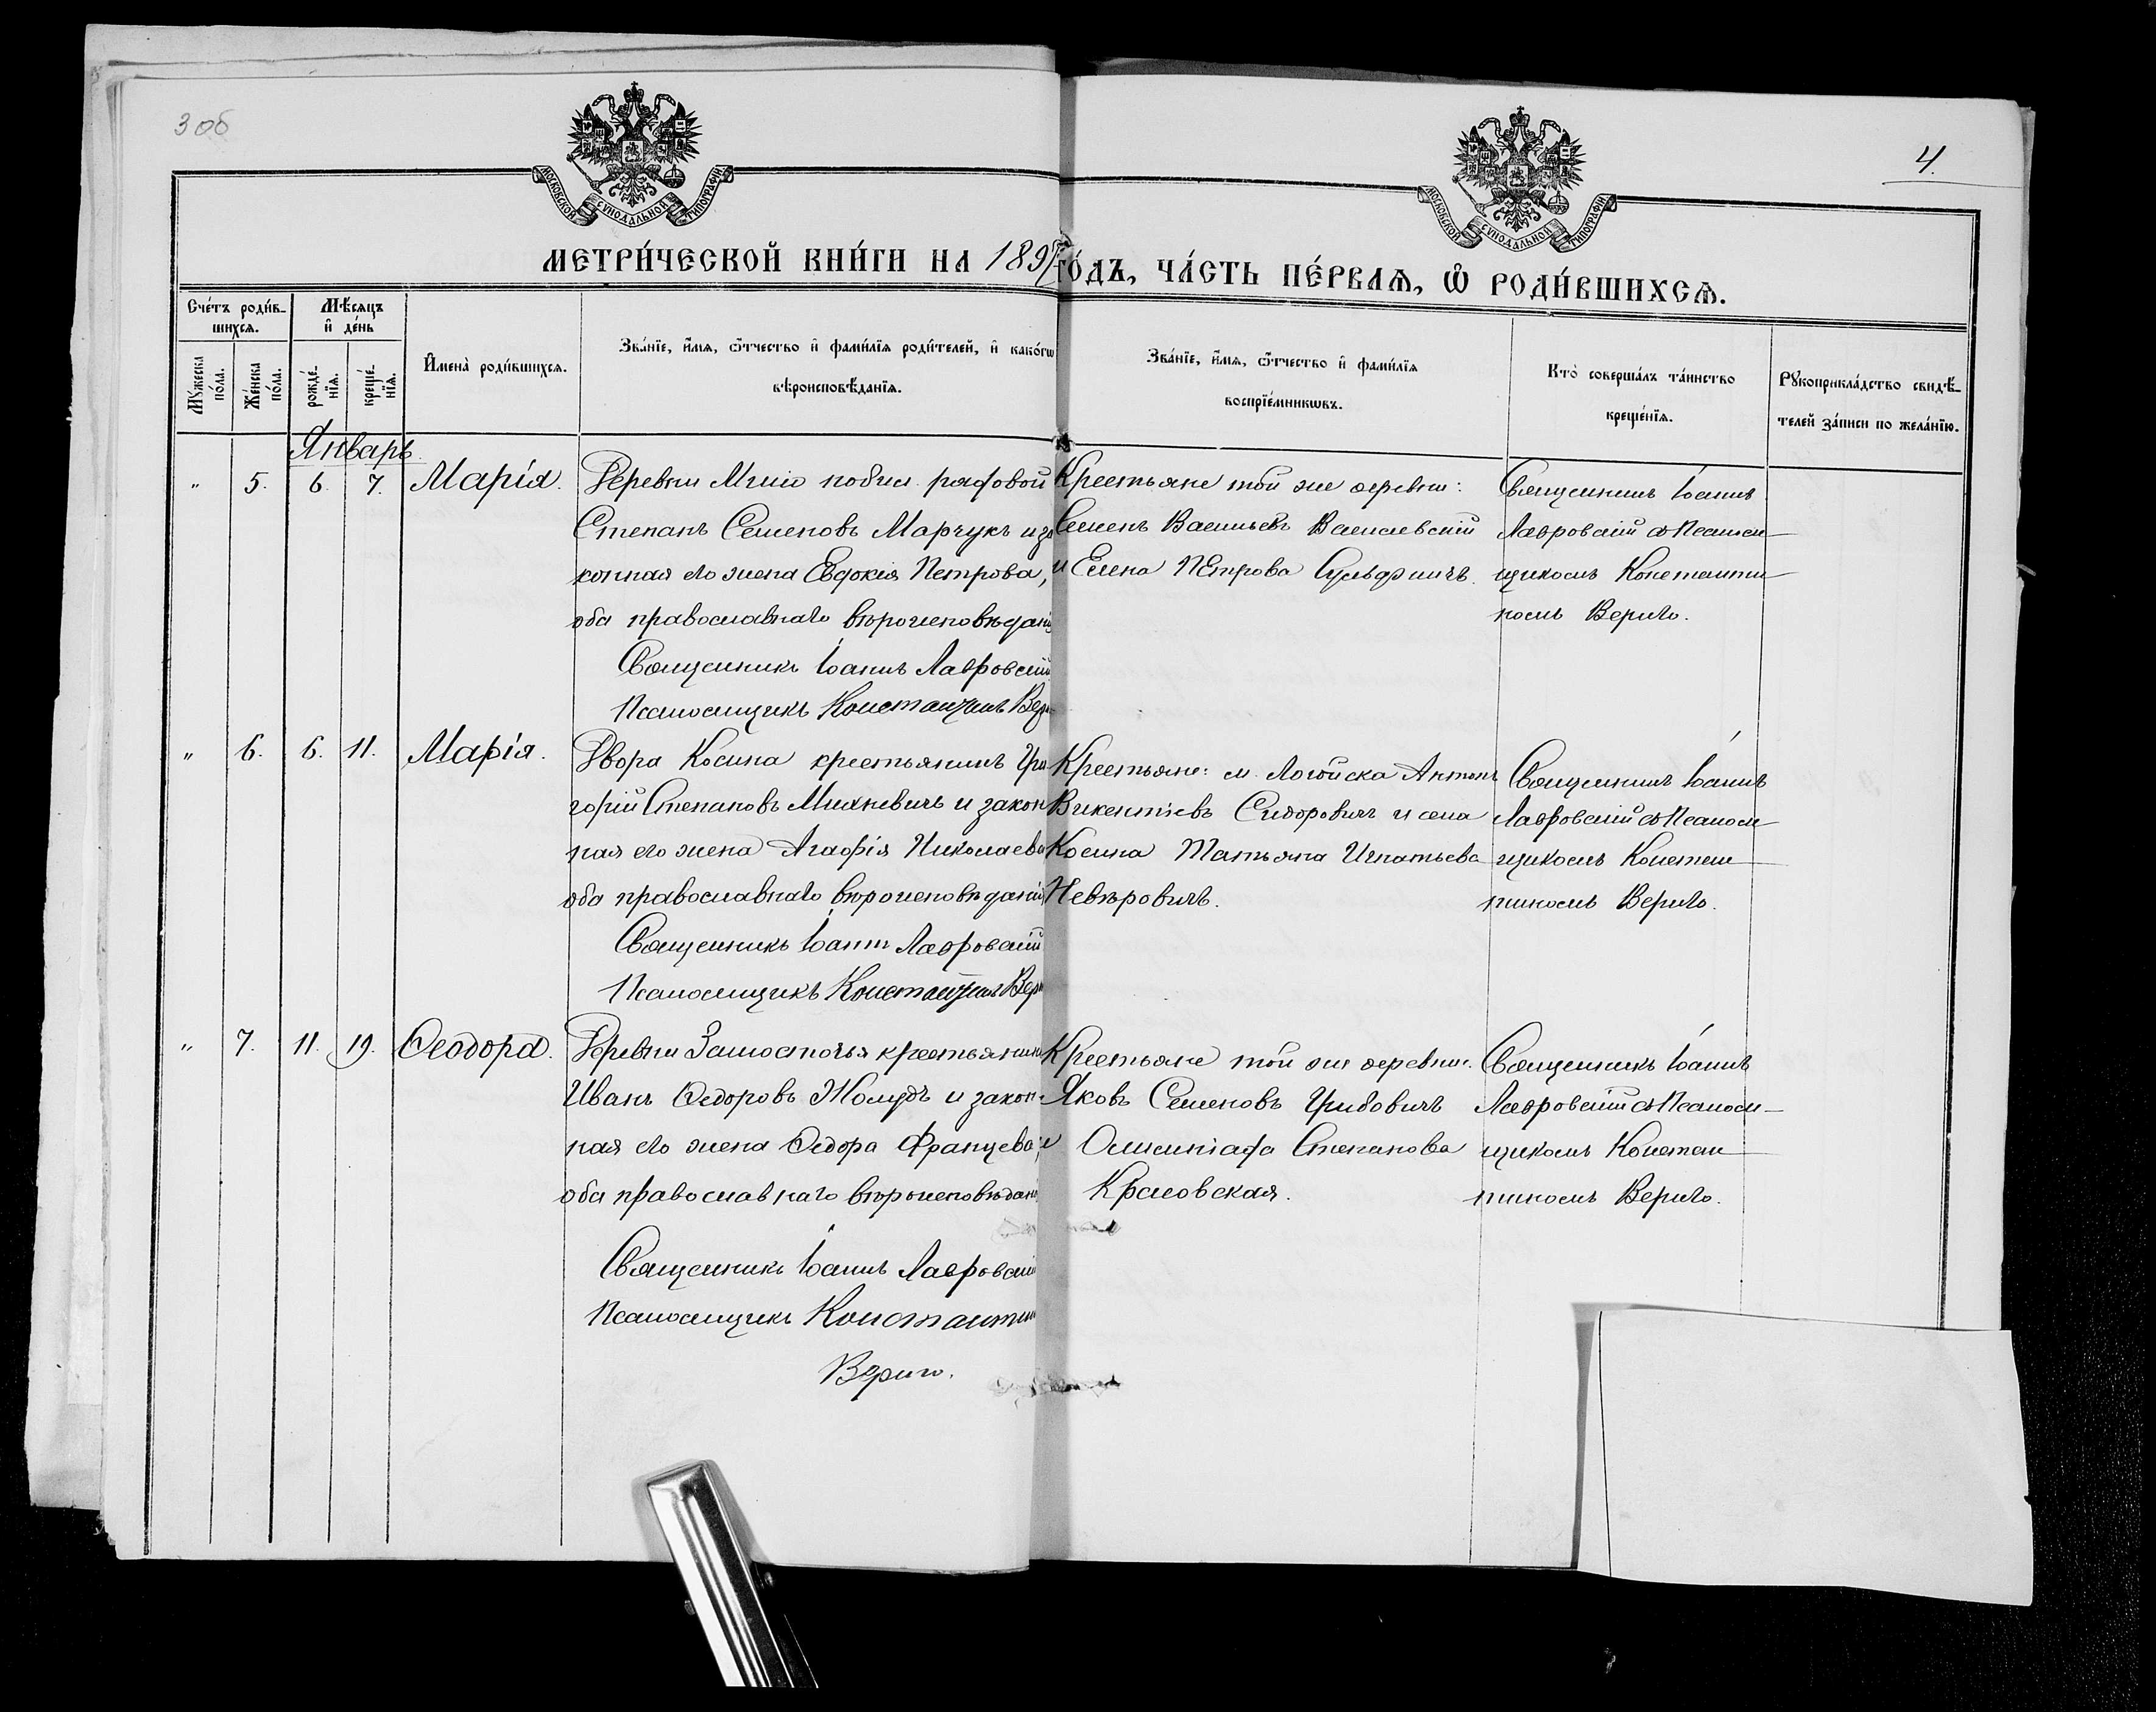 3 об
4.
МОСКОВСКОЙ СѴНОДАЛЬНОЙ ТИПОГРАФІИ
МОСКОВСКОЙ СѴНОДАЛЬНОЙ ТИПОГРАФІИ
МЕТРИ́ЧЕСКОЙ КНИ́ГИ НА 189 ГО́ДЪ, ЧА́СТЬ ПЕ́РВАѦ, Ѡ҆ РОДИ́ВШИХСѦ.
Сче́тъ роди́в-
шихсѧ.
Мꙋжеска по́ла.
Же́нска по́ла.
Мѣ́сѧцъ
и҆ де́нь
рожде́-нїѧ.
креще́-нїѧ.
И҆мена̀ роди́вшихсѧ.
Зва́нїе, и҆́мѧ, ѻ҆́тчество и҆ фами́лїѧ роди́телей, и҆ како́гѡ
вѣроисповѣ́данїѧ.
Зва́нїе, и҆́мѧ, ѻ҆́тчество и҆ фами́лїѧ
воспрїе́мникѡвъ.
Кто̀ соверша́лъ та́инство
креще́нїѧ.
Рꙋкоприкла́дство свидѣ́-
телей за́писи по жела́нїю.
Январь.
" 5. 6. 7. Марія.
Деревни рядовой
Степанъ Семеновъ Марчукъ и за
конная его жена Евдокія Петрова,
оба православнаго вѣроисповѣданія
Священникъ Іоаннъ Лавровскій
Псаломщикъ Константинъ
Крестьяне той же деревни:
Семенъ Васильевъ Василевскій
и Елена Петрова
Священникъ Іоаннъ
Лавровскій съ Псаломщ-
щикомъ Константи-
номъ Вериго.
" 6. 6. 11. Марія.
Двора Косина крестьянинъ Гри
горій Степановъ Михневичъ и закон
ная его жена Агафія Николаева
оба православнаго вѣроисповѣданія
Священникъ Іоаннъ Лавровскій
Псаломщикъ Константинъ
Крестьяне: м. Логойска Антонъ
Викентіевъ Сидоровичъ и села
Косина Татьяна Игнатьева
Невѣровичъ.
Священникъ Іоаннъ
Лавровскій съ Псаломщ-
щикомъ Констан-
тиномъ Вериго.
" 7. 11. 19. Ѳеодора.
Деревни Замосточья крестьянинъ
Иванъ Ѳедоровъ Жолудъ и закон-
ная его жена Ѳедора Францева,
оба православнаго вѣроисповѣданія
Священникъ Іоаннъ Лавровскій
Псаломщикъ Константинъ
Вериго.
Крестьяне той же деревни:
Яковъ Семеновъ Грибовичъ
и Степанова
Священникъ Іоаннъ
Лавровскій съ Псаломщ-
щикомъ Констан-
тиномъ Вериго.